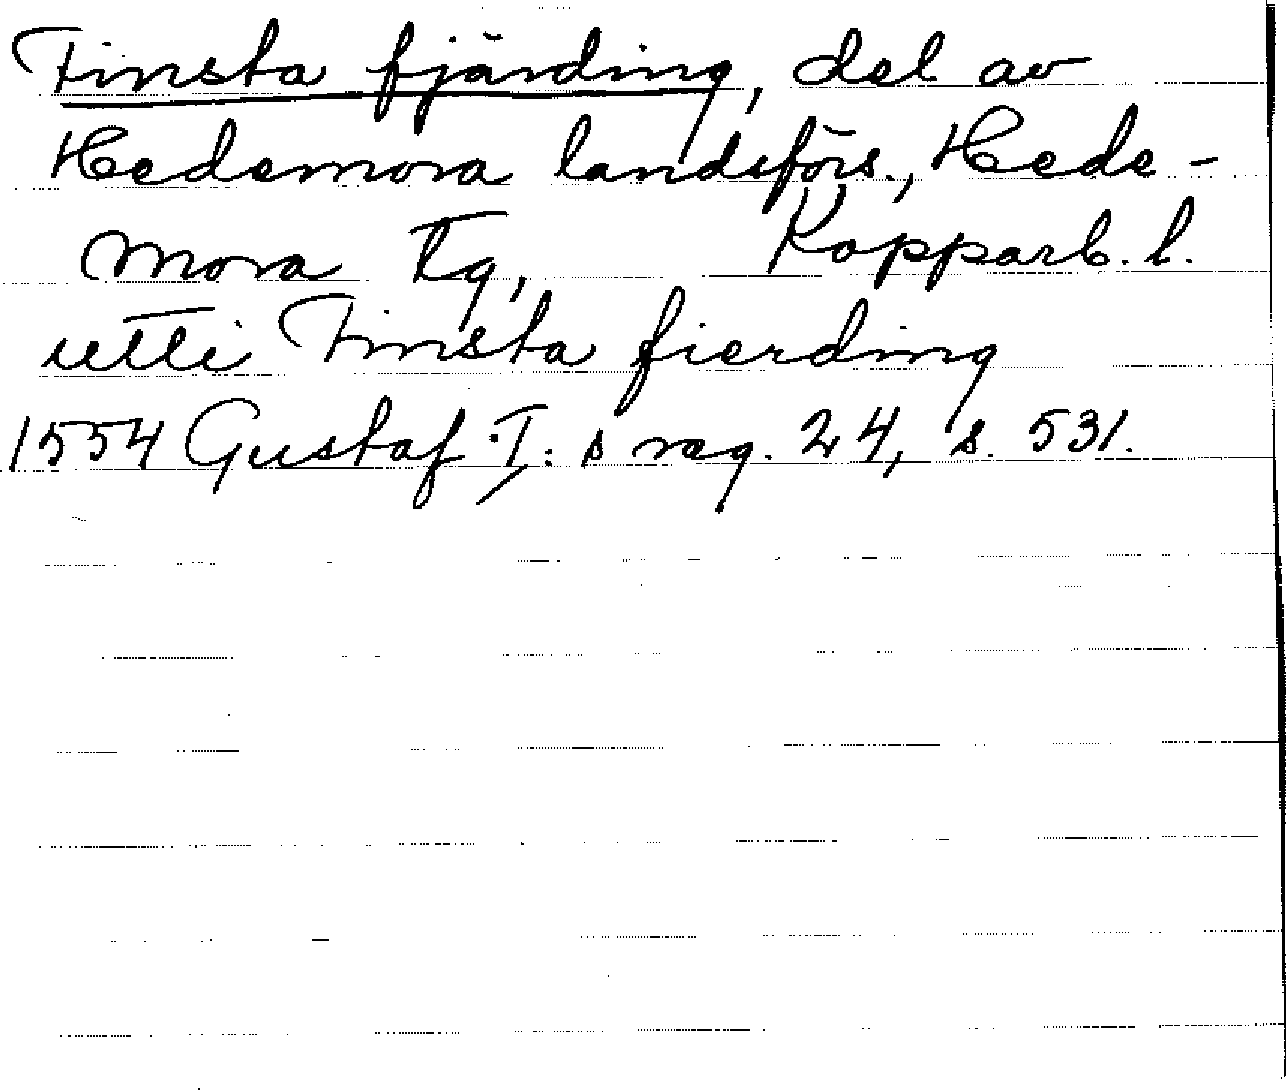 Finsta fjärding, del av
Hedemora landsförs., Hede-
mora tg, Kopparb. l.
utti Finsta fierding
1554 Gustaf I:s reg. 24, s. 531.